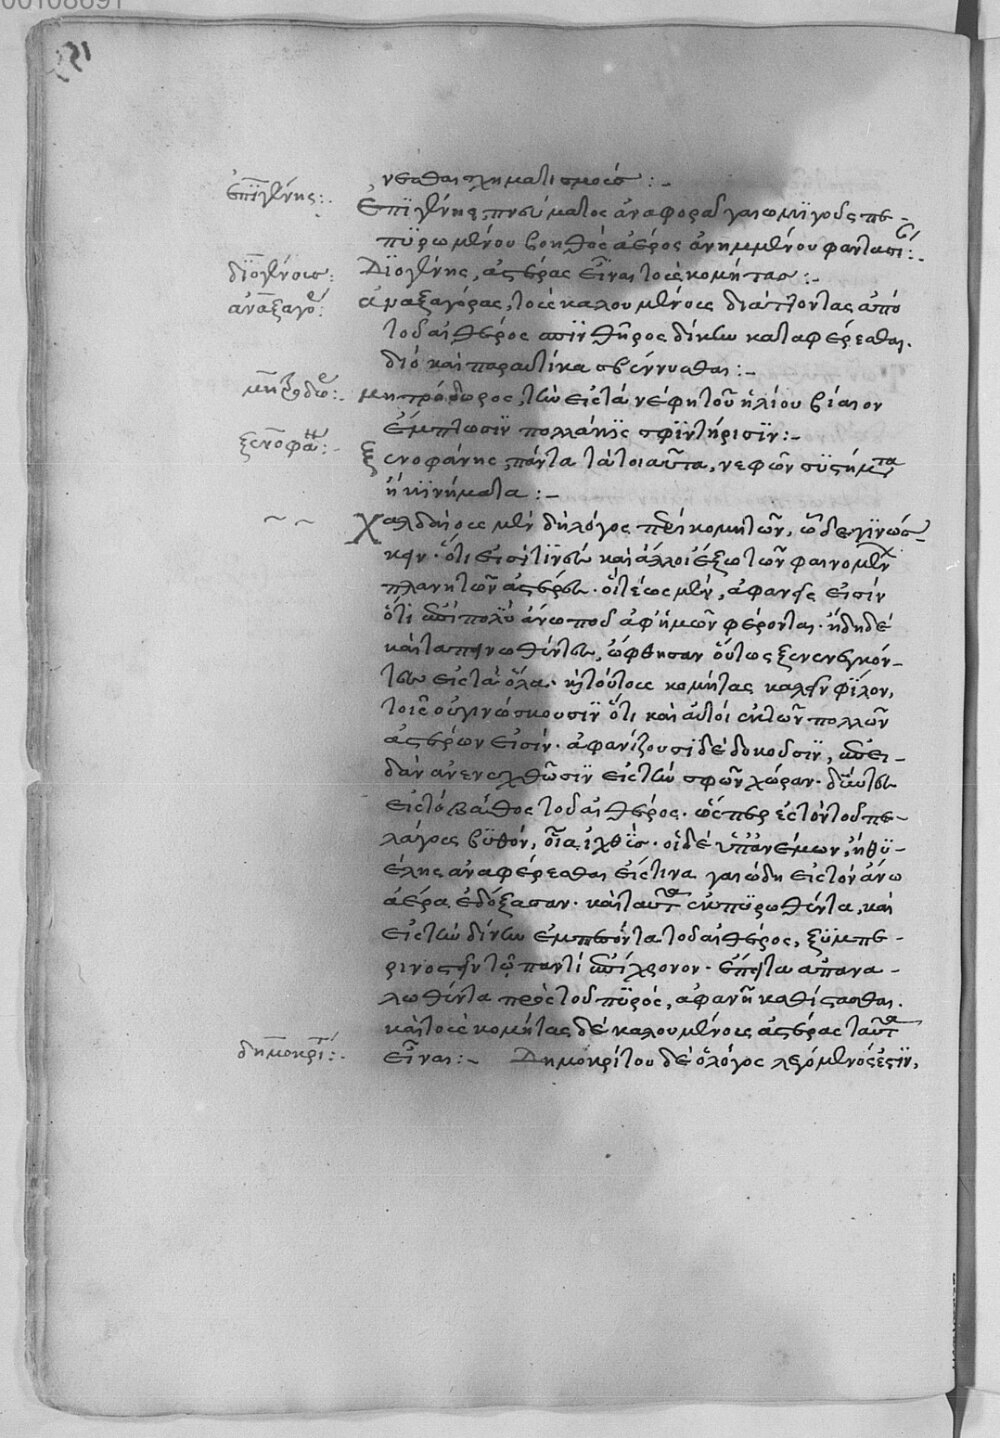 00108691
νεσθαι σχηματισμούς :-
ἐπιγένης :- Ἐπιγένης, πνεύματος ἀναφορὰ γαιωμιγοῦς πε-
πυρωμένου βοηθὸς ἀέρος ἀνημμένου φαντασί :-
διογένους : Διογένης, ἀστέρας εἶναι τοὺς κομήτας :-
ἀναξαγό : ἀναξαγόρας, τοὺς καλουμένους διάττοντας ἀπὸ
τοῦ αἰθέρος σπινθῆρος δίκην καταφέρεσθαι.
διὸ καὶ παραυτίκα σβέννυσθαι :-
μητροδώ :- μητρόδωρος, τὴν εἰς τὰ νέφη τοῦ ἡλίου βίαιον
ἔμπτωσιν πολλάκις σπινθηρίζειν :-
ξενοφάν :- Ξενοφάνης, πάντα τὰ τοιαῦτα, νεφῶν συστήματα
ἢ κινήματα :-
Χαλδαίοις μὲν δὴ λόγος περὶ κομητῶν, ὧδε γινώσ-
κειν · ὅτι εἰσί τινες καὶ ἄλλοι ἔξω τῶν φαινομένων
πλανητῶν ἀστέρες · οἳ τέως μὲν, ἀφανεῖς εἰσὶν
ὅτι ἐπὶ πολὺ ἄνω που ἀφ' ἡμῶν φέρονται · ἤδη δὲ
καὶ ταπεινωθέντες, ὤφθησαν οὕτως ξυνενεγκόν-
των εἰς τὰ ὅλα · καὶ τούτους κομήτας καλεῖν φίλον,
τοῖς οὐ γινώσκουσιν ὅτι καὶ αὐτοὶ ἐκ τῶν πολλῶν
ἀστέρων εἰσίν · ἀφανίζουσι δὲ δοκοῦσιν, ἐπει-
δὰν ἀνενεχθῶσιν εἰς τὴν σφῶν χώραν · δύντες
εἰς τὸ βάθος τοῦ αἰθέρος · ὥσπερ ἐς τὸν τοῦ πε-
λάγους βυθὸν, οἷα ἰχθῦς · οἱ δὲ ὑπ' ἀνέμων, ἢ θυ-
έλης ἀναφέρεσθαι εἴς τινα γαιώδη εἰς τὸν ἄνω
ἀέρα ἐδόξασαν · καὶ ταῦτα ἐκπυρωθέντα, καὶ
εἰς τὴν δίνην ἐμπεσόντα τοῦ αἰθέρος, ξυμπε-
ρινοστεῖν τῷ παντὶ ἐπὶ χρόνον · ἔπειτα ἀπανα-
λωθέντα πρὸς τοῦ πυρός, ἀφανῆ καθίστασθαι.
καὶ τοὺς κομήτας δὲ καλουμένους ἀστέρας ταῦτα
δημοκρί :- εἶναι :- Δημοκρίτου δὲ ὁ λόγος λεγόμενός ἐστιν,